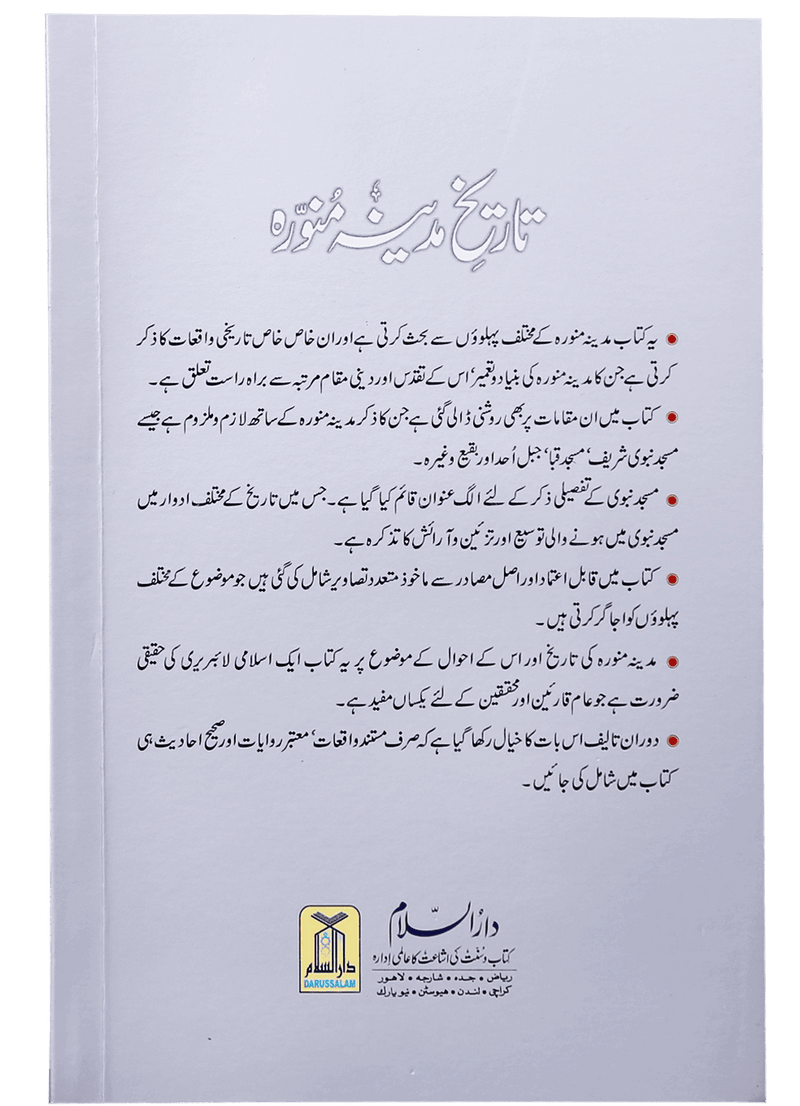 تاریخِ مدینہ مُنوّرہ
● یہ کتاب مدینہ منورہ کے مختلف پہلوؤں سے بحث کرتی ہے اور ان خاص خاص تاریخی واقعات کا ذکر
کرتی ہے جن کا مدینہ منورہ کی بنیاد و تعمیر، اس کے تقدس اور دینی مقام مرتبہ سے براہ راست تعلق ہے۔
● کتاب میں ان مقامات پر بھی روشنی ڈالی گئی ہے جن کا ذکر مدینہ منورہ کے ساتھ لازم و ملزوم ہے جیسے
مسجد نبوی شریف، مسجد قبا، جبل اُحد اور بقیع وغیرہ۔
● مسجد نبوی کے تفصیلی ذکر کے لئے الگ عنوان قائم کیا گیا ہے۔ جس میں تاریخ کے مختلف ادوار میں
مسجد نبوی میں ہونے والی توسیع اور تزئین و آرائش کا تذکرہ ہے۔
● کتاب میں قابل اعتماد اور اصل مصادر سے ماخوذ متعدد تصاویر شامل کی گئی ہیں جو موضوع کے مختلف
پہلوؤں کو اجاگر کرتی ہیں۔
● مدینہ منورہ کی تاریخ اور اس کے احوال کے موضوع پر یہ کتاب ایک اسلامی لائبریری کی حقیقی
ضرورت ہے جو عام قارئین اور محققین کے لئے یکساں مفید ہے۔
● دوران تالیف اس بات کا خیال رکھا گیا ہے کہ صرف مستند واقعات، معتبر روایات اور صحیح احادیث ہی
کتاب میں شامل کی جائیں۔
دارُالسّلام
کتاب و سُنّت کی اشاعت کا عالمی ادارہ
ریاض • جدہ • شارجہ • لاہور
کراچی • لندن • ہیوسٹن • نیو یارک
دارالسلام
DARUSSALAM